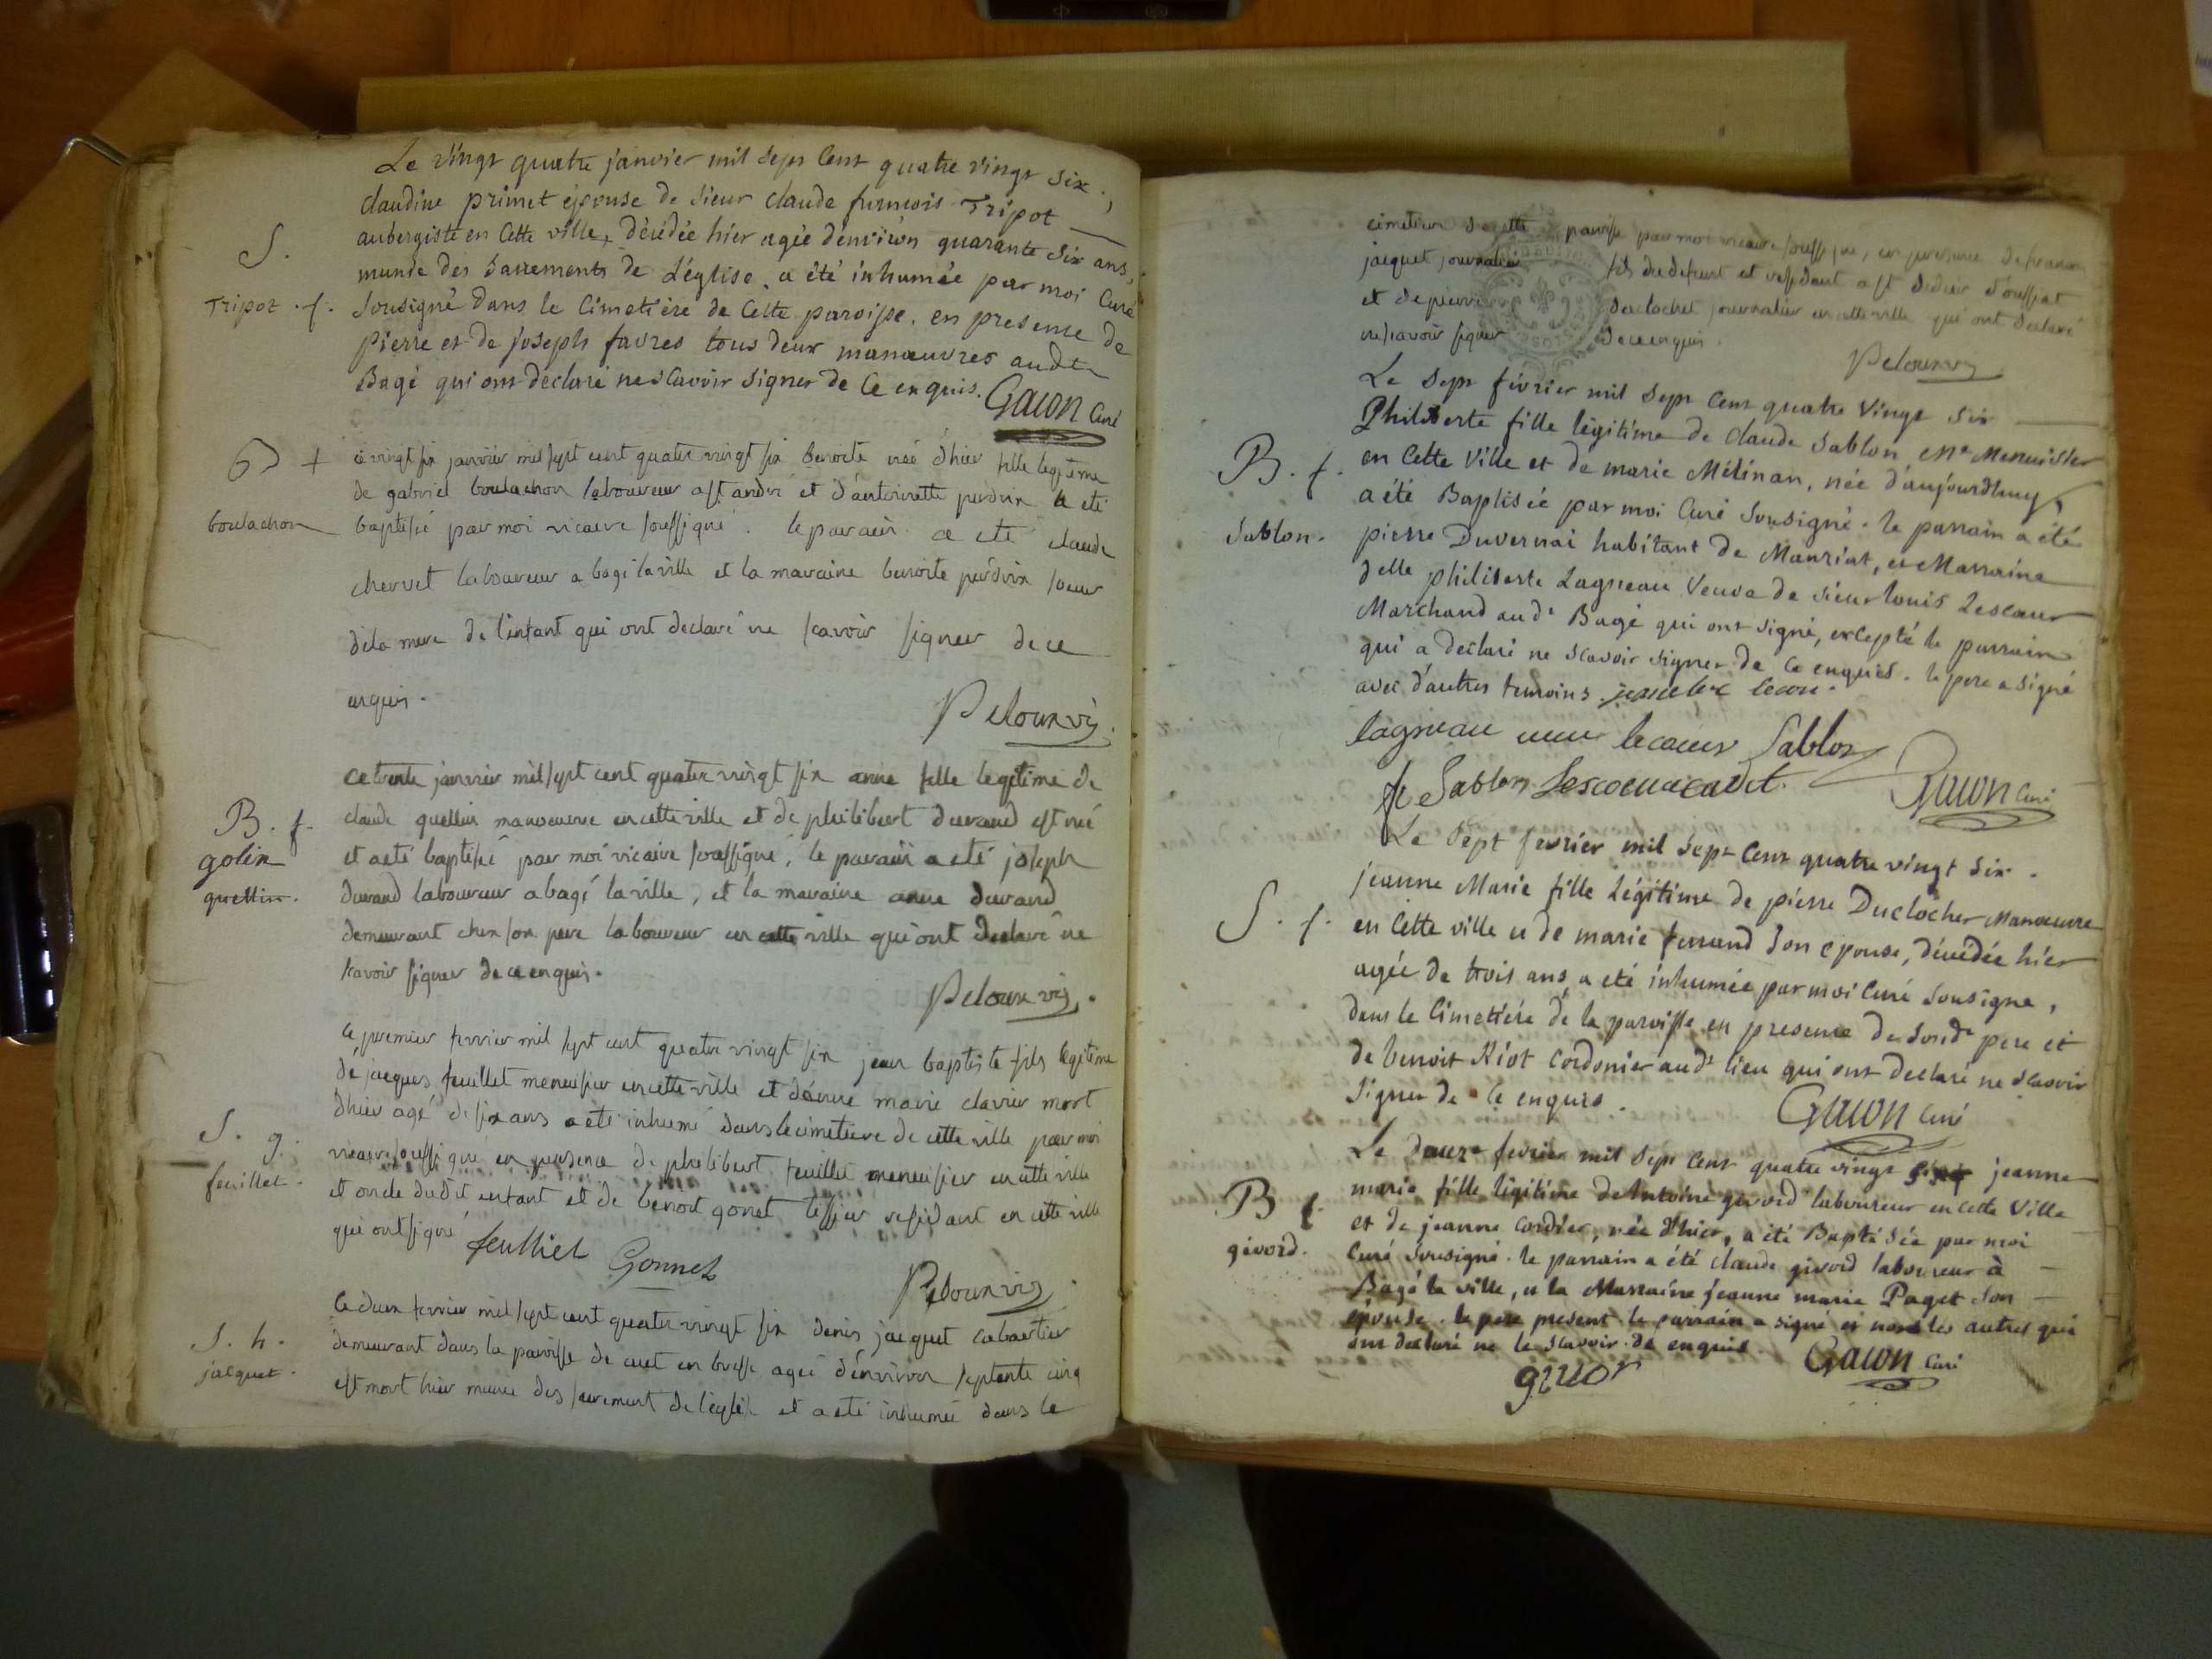 Le vingt quatre janvier mil sept cent quatre vingt six,
claudine primet épouse de sieur claude francois Tripot
aubergiste en Cette ville, décédée hier agée d'environ quarante six ans,
munie des Sacrements de L'église, a été inhumée par moi Curé
Sousigné dans le Cimetière de Cette paroisse, en presence de
pierre et de joseph favres tous deux manœuvres audt
Bagé qui ont declaré ne scavoir signer de Ce enquis. Gacon Curé
S.
Tripot . f.
ce vingt six janvier mil sept cent quatre vingt six benoite née d'hier fille legitime
de gabriel boulachon laboureur a st andré et d'antoinette perdrix a eté
baptisé par moi vicaire soussigné . le parain a eté claude
chervet laboureur a bagé la ville et la maraine benoite perdrix soeur
de la mere de l'enfant qui ont declaré ne scavoir signer de ce
enquis .
boulachon
Peloux vic.
ce trente janvier mil sept cent quatre vingt six anne fille legitime de
claude quellin manoeuvre en cette ville et de philibert durand est née
et a eté baptisé par moi vicaire soussigné, le parain a eté joseph
durand laboureur a bagé la ville, et la maraine anne durand
demeurant chez son pere laboureur en cette ville qui ont declaré ne
scavoir signer de ce enquis .
B . f.
golin
quellin.
Peloux vic.
ce premier fevrier mil sept cent quatre vingt six jean baptiste fils legitime
de jacques feuillet menuisier en cette ville et d'anne marie clavier mort
d'hier agé de six ans a eté inhumé dans le cimetiere de cette ville par moi
vicaire soussigné en presence de philibert feuillet menuisier en cette ville
et oncle dudit enfant et de benoit gonet tessier residant en cette ville
qui ont signé
S . g.
feuillet .
feulliet Gonnet
Peloux vic
Ce deux fevrier mil sept cent quatre vingt six denis jacquet cabartier
demeurant dans la paroisse de cuet en bresse agé d'environ septante cinq
est mort hier muni des sacrement de l'eglise et a eté inhumé dans le
S . h .
jacquet .
cimetiere de cette paroisse par moi vicaire soussigné, en presence de
jacquet journalier fils du defunt et residant a st didier d'oussiat
et de pierre duclochet journalier en cette ville qui ont declaré
ne scavoir signer de ce enquis .
Peloux vic
Le sept février mil sept cent quatre vingt six
Philiberte fille légitime de claude Sablon Me Menuisier
en Cette Ville et de marie Mélinan, née d'aujourdhuy,
a été Baptisée par moi Curé Sousigné . le parrain a été
pierre Duvernai habitant de Manziat, et Marraine
delle philiberte Lagneau Veuve de sieur louis Lescœur
Marchand audt Bagé qui ont signé, excepté le parrain
qui a declaré ne scavoir signer de Ce enquis . le pere a signé
avec d'autres temoins .
B . f.
Sablon.
lagneau Sablon
Sablon
Gacon Curé
Le Sept fevrier mil sept Cent quatre vingt six .
jeanne Marie fille Légitime de pierre Duclocher Manœuvre
en Cette ville et de marie ferrand Son epouse, décédée hier
agée de trois ans, a eté inhumée par moi Curé Sousigné,
dans le Cimetiére de la paroisse en presence de sondt pere et
de benoit Riot Cordonier audt lieu qui ont declaré ne scavoir
Signer de Ce enquis .
S . f.
Gacon Curé
Le douze fevrier mil sept Cent quatre vingt six jeanne
marie fille légitime d'Antoine givord laboureur en Cette Ville
et de jeanne Cordier, née d'hier, a été Baptisée par moi
Curé Sousigné . le parrain a été claude givord laboureur à
Bagé la ville, et la Marraine jeanne marie Paget Son
épouse . le pere present . le parrain a signé et non les autres qui
ont declaré ne le scavoir . de enquis .
B f.
givord.
Gacon Curé